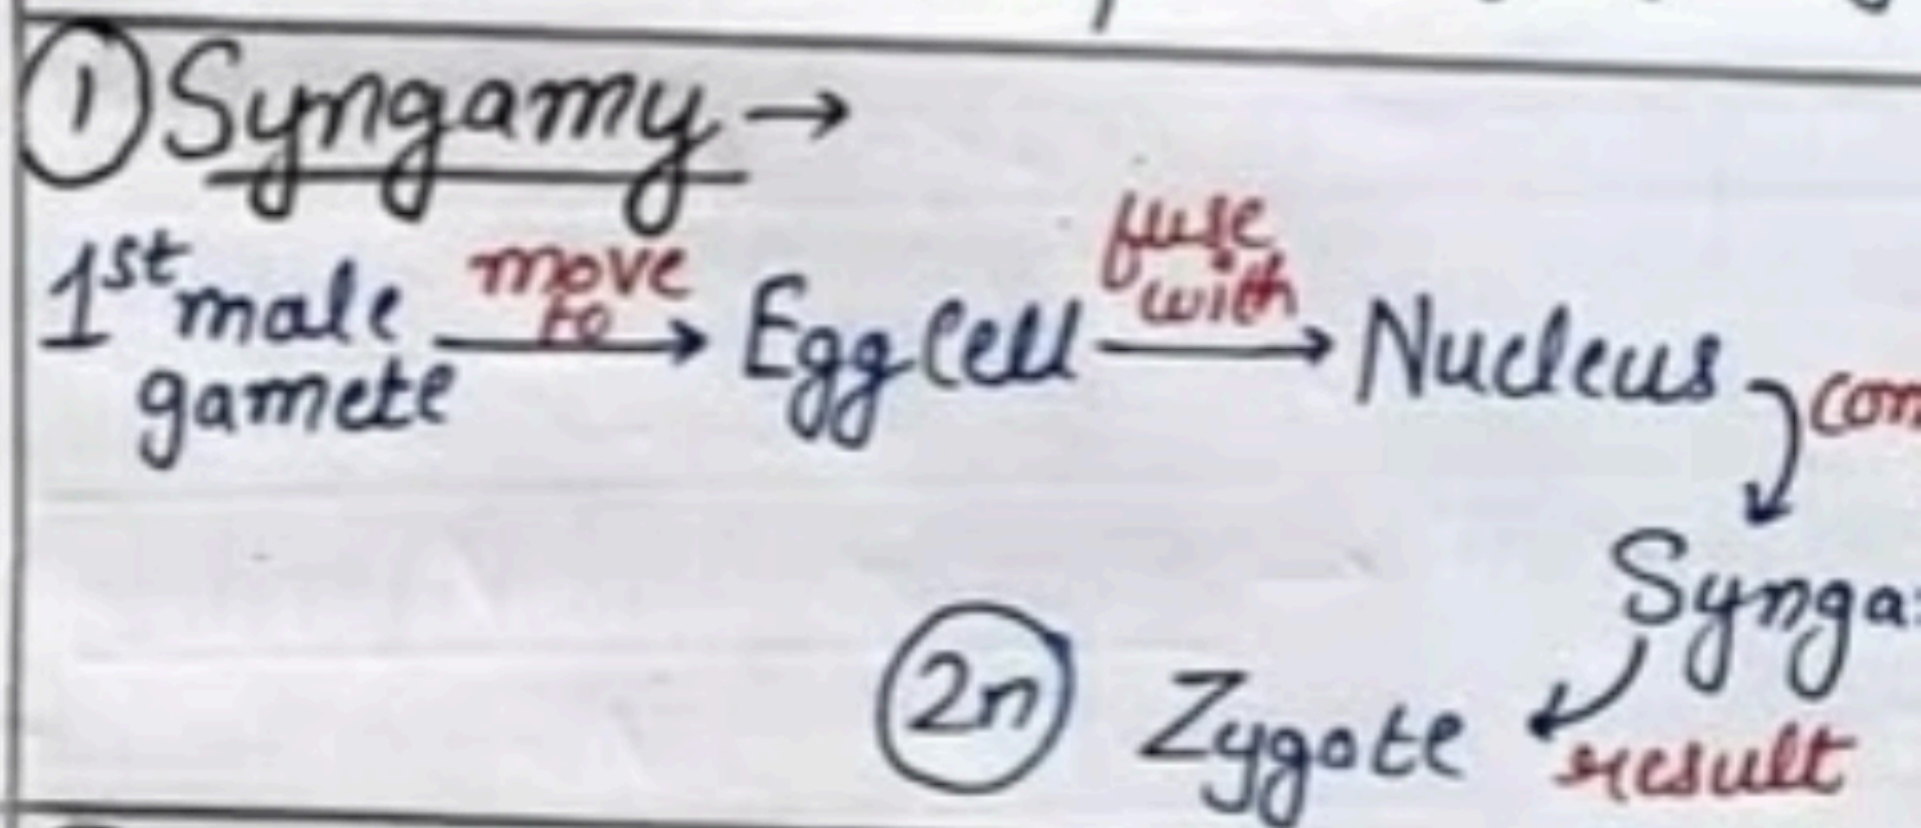 ① Syngamy →
1st male gamete move to → Egg Cell fuse with → Nucleus
Zygote
result
2n